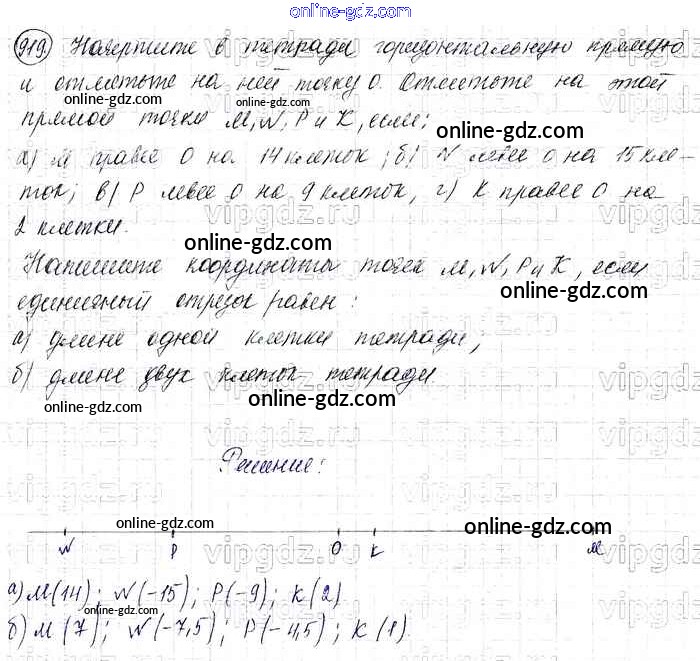 online-gdz.com
919. Начертите в тетради горизонтальную прямую
и отметьте на ней точку О. Отметьте на этой
online-gdz.com online-gdz.com
прямой точки M, N, P и K, если:
online-gdz.com
а) M правее O на 14 клеток; б) N левее O на 15 кле-
ток; в) P левее O на 9 клеток, г) K правее O на
2 клетки.
online-gdz.com
Напишите координаты точек M, N, P и K, если
online-gdz.com
единичный отрезок равен:
а) длине одной клетки тетради;
б) длине двух клеток тетради
online-gdz.com online-gdz.com
Решение:
online-gdz.com online-gdz.com
N P O K M
а) M(14); N(-15); P(-9); K(2)
online-gdz.com online-gdz.com
б) M(7); N(-7,5); P(-4,5); K(1).